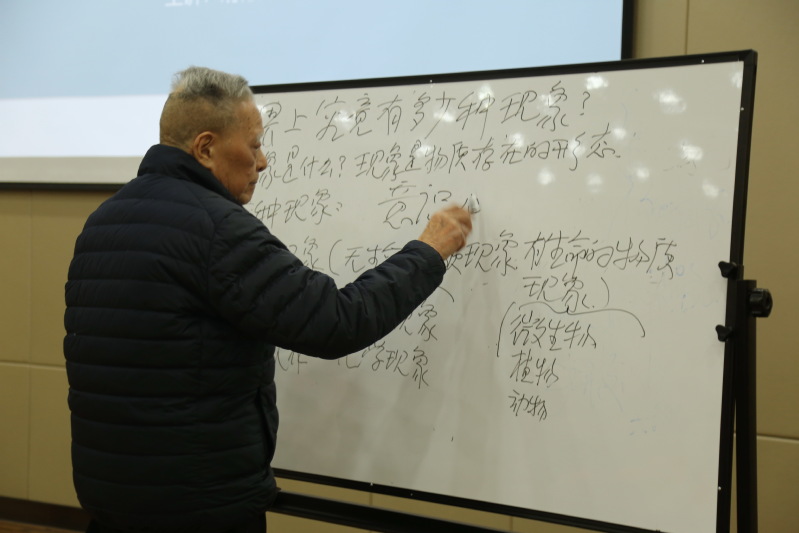 界上究竟有多少种现象?
象是什么?现象是物质存在的形态.
种现象: 意识
象(无 现象 有生命的物质
现象)
现象
微生物
化学现象
植物
动物